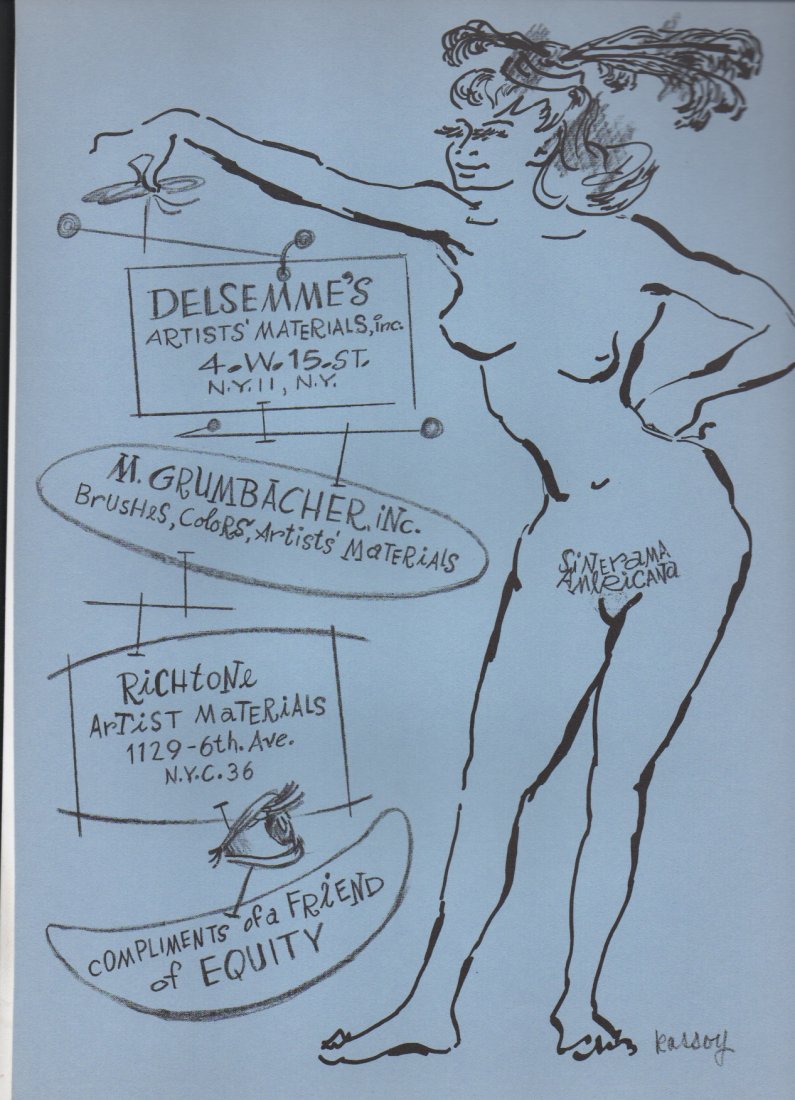 DELSEMME'S
ARTISTS' MATERIALS, inc.
4. W. 15. ST.
N.Y. 11, N.Y.
M. GRUMBACHER, iNc.
BrUsHes, ColoRS, Artists' MaTeRiALS
SiNErama
AmericaNa
RiCHtoNe
ArTiST MaTeRiALS
1129 - 6th. Ave.
N.Y.C. 36
COMPLIMENTS of a FRiEND
of EQUITY
Kassoy